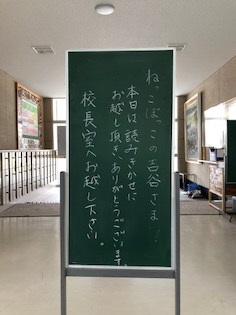 ねっこぼっこの吉谷さま!
本日は読みきかせに
お越し頂き、ありがとうございます。
校長室へお越し下さい。